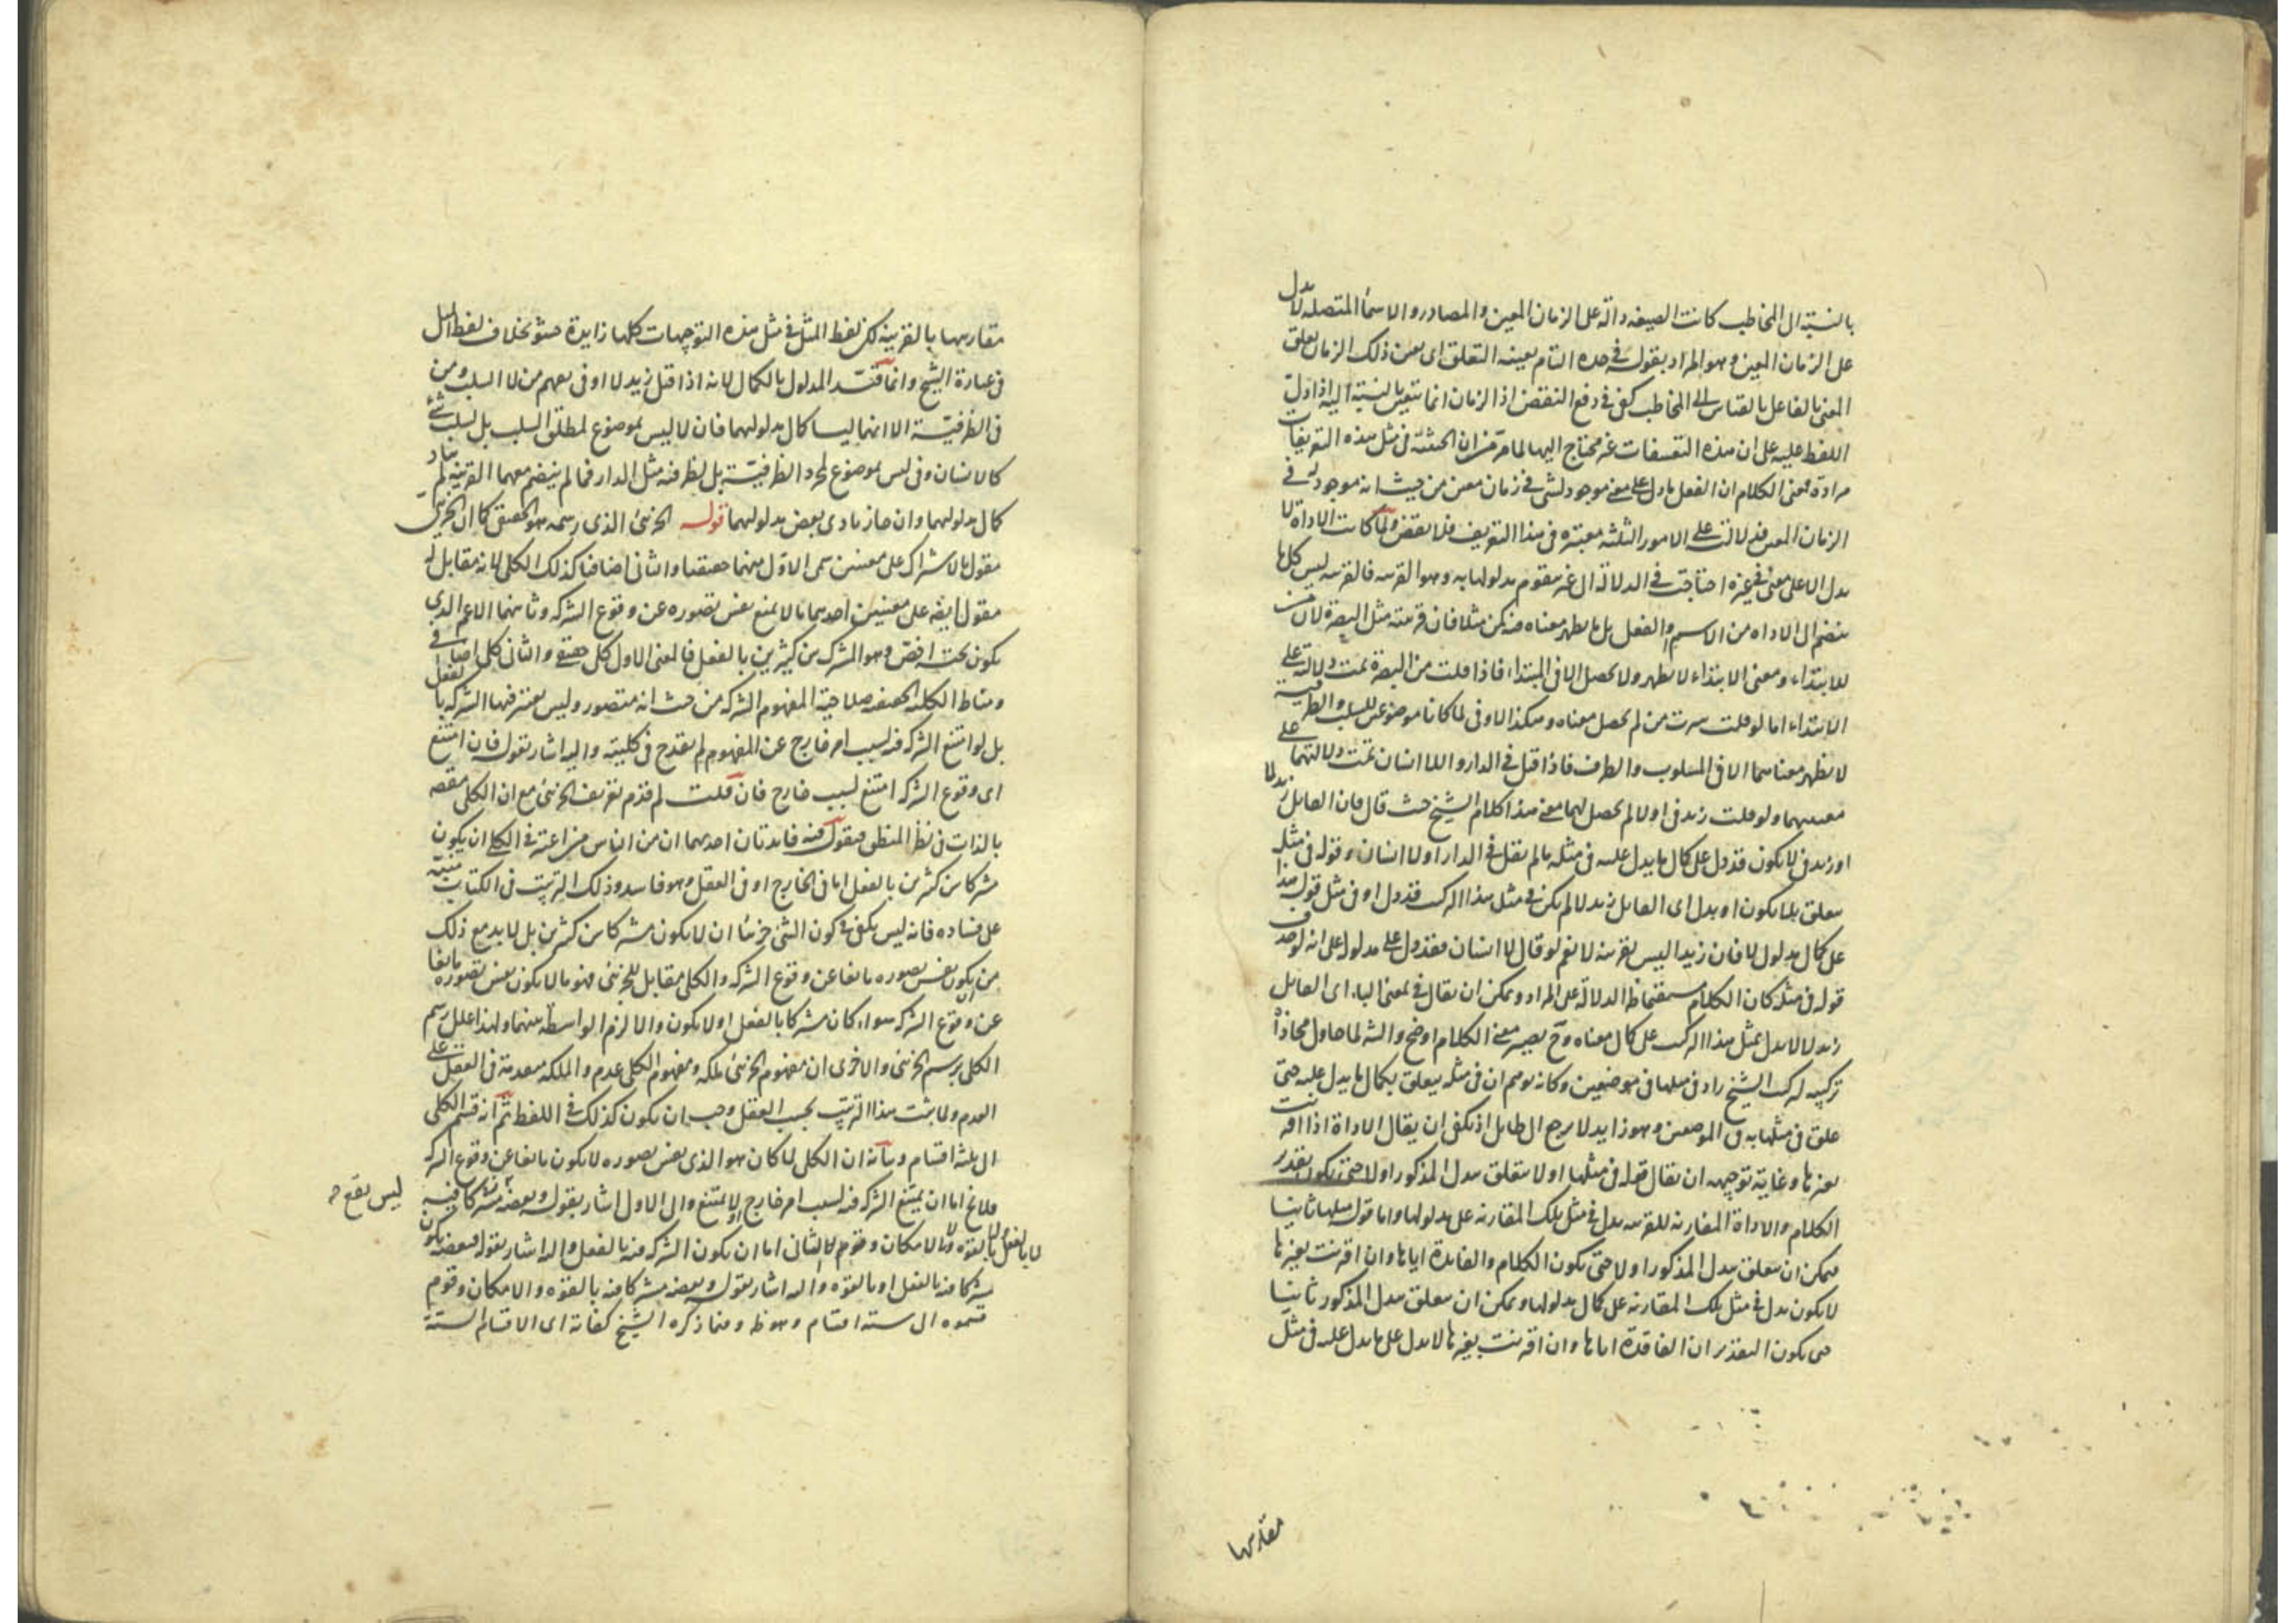 بالنسبة الى المخاطب كانت الصيغة دالة على الزمان المعين والمصادر والاسماء المتصلة لا يدل
على الزمان المعين وهو المراد بقوله في حده التام بعينه التعلق اى بعين ذلك الزمان تعلق
المعنى بالفاعل بالقياس الى المخاطب كفى في دفع النقض اذ الزمان انما يتعين بالنسبة اليه اذا دل
اللفظ عليه على ان هذه التعسفات غير محتاج اليها لما مر من ان الحيثية في مثل هذه التعريفات
مرادة فمعنى الكلام ان الفعل ما دل على معنى موجود لشى في زمان معين من حيث انه موجود له في
الزمان المعين فدلالته على الامور الثلثة معتبرة في هذا التعريف فلا نقض ولما كانت الاداة لا
يدل الا على معنى في غيره احتاجت في الدلالة الى غير يتقوم مدلولها به وهو القرينه فالقرينه ليس كل ما
ينضم الى الاداة من الاسم والفعل بل ما يظهر معناه فيه كمن مثلا فان قرينته مثل البصرة لان من
للابتداء ومعنى الابتداء لا يظهر ولا يحصل الا في المبتداء فاذا قلت من البصرة تمت دلالته على
الابتداء اما لو قلت سرت من لم يحصل معناه وهكذا لا وفى لما كانا موضوعين للسلب والظرفية
لا يظهر معناهما الا في المسلوب والظرف فاذا قيل في الدار و لا انسان تمت دلالتهما على
معنييهما ولو قلت زيد في او لا لم يحصل لهما معنى هذا كلام الشيخ حيث قال فان القايل زيد لا
او زيد في لا يكون قد دل على كمال ما يدل عليه في مثله ما لم يقل في الدار او لا انسان وقوله في مثله
يتعلق بلا يكون او يدل اى القايل زيد لا لم يكن في مثل هذا التركيب قد دل او في مثل قوله هذا
على كمال مدلول لا فان زيدا ليس بقرينة لا نعم لو قال لا انسان فقد دل على مدلول لا على انه لو حذف
قوله في مثله كان الكلام مستقيما ظ الدلالة على المراد ويمكن ان يقال في بمعنى الباء اى القايل
زيد لا لا يدل بمثل هذا التركيب على كمال معناه وح يصير معنى الكلام اوضح والشه لما حاول محاذاة
تركيبه لتركيب الشيخ زاد في مثلها في موضعين وكانه توهم ان في مثله يتعلق بكمال ما يدل عليه حتى
علق في مثلها به في الموضعين وهو زايد لا يرجع الى طايل اذ يكفى ان يقال الاداة اذا اقترنت
بغيرها وغاية توجيهه ان يقال قوله في مثلها اولا متعلق بيدل المذكور اولا حتى يكون تقدير
الكلام والاداة المقارنه للقرينه يدل في مثل تلك المقارنه على مدلولها واما قوله مثلها ثانيا
فيمكن ان يتعلق بيدل المذكور اولا حتى يكون الكلام والفاقدة اياها وان اقترنت بغيرها
لا يكون يدل في مثل تلك المقارنه على كمال مدلولها ويمكن ان يتعلق بيدل المذكور ثانيا
حتى يكون التقدير ان الفاقدة اياها وان اقترنت بغيرها لا يدل على ما يدل عليه في مثل
مقارنتها
مقارنتها بالقرينه لكن لفظ المثل في مثل هذه التوجيهات كلها زايدة حشو بخلاف لفظ المثل
في عبارة الشيخ وانما قيّد المدلول بالكمال لانه اذا قيل زيد لا او في يفهم من لا السلب ومن
في الظرفية الا انهما ليسا كمال مدلوليهما فان لا ليس بموضوع لمطلق السلب بل لسلب شئ
كالانسان وفى ليس بموضوع لمجرد الظرفية بل لظرفيه مثل الدار فما لم ينضم معهما القرينه لم يتاد
كمال مدلوليهما وان جاز تادى بعض مدلوليهما قوله الجزئى الذى رسمه هو الحقيقى كما ان الجزئى
مقول بالاشتراك على معنيين سمى الاول منهما حقيقيا والثانى اضافيا كذلك الكلى لانه مقابل له
مقول ايضه على معنيين احدهما ما لا يمنع نفس تصوره عن وقوع الشركه وثانيهما الاعم الذى
يكون تحت اخص وهو المشترك بين كثيرين بالفعل فالمعنى الاول كلى حقيقى والثانى كلى اضافى
ومناط الكلية الحقيقه صلاحية المفهوم الشركه من حيث انه متصور وليس يعتبر فيها الشركه بالفعل
بل لو امتنع الشركه فيه لسبب امر خارج عن المفهوم لم يقدح في كليته واليه اشار بقوله فان امتنع
اى وقوع الشركه امتنع لسبب خارج فان قلت لم قدم تعريف الجزئى مع ان الكلى مقصه
بالذات في نظر المنطقى فيقول فيه فايدتان احديهما ان من الناس من اعتبر في الكلى ان يكون
مشتركا بين كثيرين بالفعل اما في الخارج او في العقل وهو فاسد وذلك الترتيب في الكتاب تنبيه
على فساده فانه ليس يكفى في كون الشئ جزئيا ان لا يكون مشتركا بين كثيرين بل لا بد مع ذلك
من ان يكون نفس تصوره مانعا عن وقوع الشركه والكلى مقابل للجزئى فهو ما لا يكون نفس تصوره مانعا
عن وقوع الشركه سواء كان مشتركا بالفعل او لا يكون والا لزم الواسطة بينهما ولهذا علل رسم
الكلى برسم الجزئى والاخرى ان مفهوم الجزئى ملكه ومفهوم الكلى عدم والملكه متقدمة في التعقل على
العدم ولما ثبت هذا الترتيب بحسب العقل وجب ان يكون كذلك في اللفظ ثم انه قسم الكلى
الى ثلثه اقسام وبيانه ان الكلى لما كان هو الذى نفس تصوره لا يكون مانعا عن وقوع الشركه
فلا يخ اما ان يمتنع الشركه فيه لسبب امر خارج او لا يمتنع والى الاول اشار بقوله وبعضه ليس يقع مشتركا فيه
لا بالفعل ولا بالقوه ولا بالامكان وقوم لا والثانى اما ان يكون الشركه فيه بالفعل واليه اشار بقوله فبعضه يكون
مشتركا فيه بالفعل او بالقوه واليه اشار بقوله وبعضه مشتركا فيه بالقوه والامكان وقوم
قسموه الى ستة اقسام وهو ظ وفيما ذكره الشيخ كفاية اى الاقسام الستة